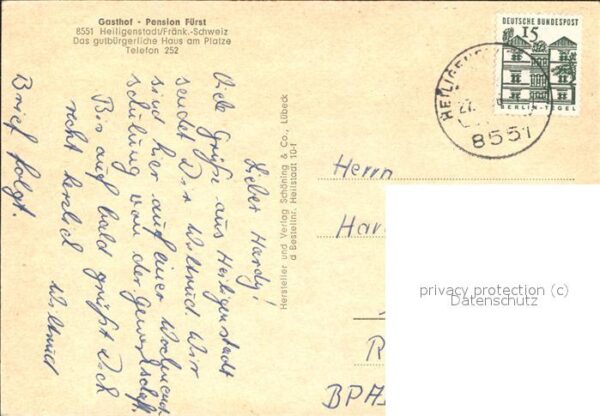 Gasthof • Pension Fürst
8551 Heiligenstadt/Fränk.-Schweiz
Das gutbürgerliche Haus am Platze
Telefon 252
DEUTSCHE BUNDESPOST
15
BERLIN-TEGEL
HEILIGEN
27.
8551
Lieber Hardy!
Viele Grüße aus Heiligenstadt
sendet Dir Wiltrud. Wir
sind hier auf einer Wochenend
schulung von der Gewerkschaft.
Bis auf bald grüßt Dich
recht herzlich Wiltrud
Brief folgt.
Hersteller und Verlag Schöning & Co., Lübeck
d Bestellnr. Heilstadt 10-f
Herrn
Har
R
BPA
privacy protection (c)
Datenschutz